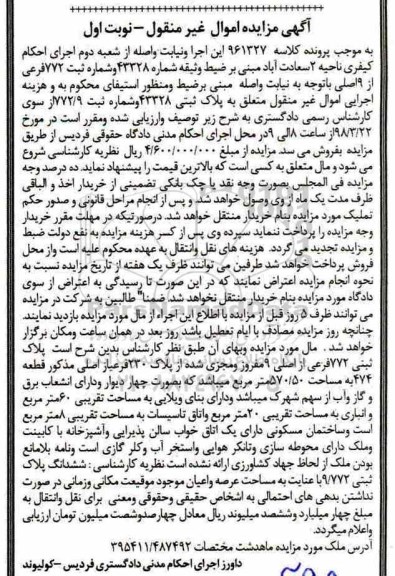 آگهی مزایده اموال غیر منقول – نوبت اول
به موجب پرونده کلاسه ۹۶۱۳۲۷ این اجرا ونیابت واصله از شعبه دوم اجرای احکام
کیفری ناحیه ۲سعادت آباد مبنی بر ضبط وثیقه شماره ۴۳۳۲۸وشماره ثبت ۷۷۲فرعی
از ۹اصلی باتوجه به نیابت واصله مبنی برضبط ومنظور استیفای محکوم به و هزینه
اجرایی اموال غیر منقول متعلق به پلاک ثبتی ۴۳۳۲۸وشماره ثبت ۷۷۲/۹از سوی
کارشناس رسمی دادگستری به شرح زیر توصیف وارزیابی شده ومقرر است در مورخ
۹۸/۳/۲۲از ساعت ۸الی ۹در محل اجرای احکام مدنی دادگاه حقوقی فردیس از طریق
مزایده بفروش می سد. مزایده از مبلغ ۴/۶۰۰/۰۰۰/۰۰۰ ریال نظریه کارشناسی شروع
می شود و مال متعلق به کسی است که بالاترین قیمت را پیشنهاد نماید. ده درصد وجه
مزایده فی المجلس بصورت وجه نقد یا چک بانکی تضمینی از خریدار اخذ و الباقی
ظرف مدت یک ماه از وی وصول خواهد شد و پس از انجام مراحل قانونی و صدور حکم
تملیک مورد مزایده بنام خریدار منتقل خواهد شد. درصورتیکه در مهلت مقرر خریدار
وجه مزایده را پرداخت ننماید سپرده وی پس از کسر هزینه مزایده به نفع دولت ضبط
و مزایده تجدید می گردد. هزینه های نقل وانتقال به عهده محکوم علیه است واز محل
فروش پرداخت خواهد شد طرفین می توانند ظرف یک هفته از تاریخ مزایده نسبت به
نحوه انجام مزایده اعتراض نمایند که در این صورت تا رسیدگی به اعتراض از سوی
دادگاه مورد مزایده بنام خریدار منتقل نخواهد شد. ضمنا" طالبین به شرکت در مزایده
می توانند ظرف ۵ روز قبل از مزایده با اطلاع این اجراء از مال مورد مزایده بازدید نمایند.
چنانچه روز مزایده مصادف با ایام تعطیل باشد روز بعد در همان ساعت ومکان برگزار
خواهد شد. مال مورد مزایده وبهای آن طبق نظر کارشناس بدین شرح است پلاک
ثبتی ۷۷۲فرعی از اصلی ۹مفروز ومجزی شده از پلاک ۲۳۰فرعیاز اصلی مذکور قطعه
۴۷۴به مساحت ۵۷۰/۵۰متر مربع میباشد که بصورت چهار دیوار ودارای انشعاب برق
و گاز وآب از سهم شهرک میباشد ودارای بنای ویلایی به مساحت تقریبی ۶۰متر مربع
و انباری به مساحت تقریبی ۲۰متر مربع واتاق تاسیسات به مساحت تقریبی ۸متر مربع
است وساختمان مسکونی دارای یک اتاق خواب سالن پذیرایی وآشپزخانه با کابینت
وملک دارای محوطه سازی وتانکر هوایی واستخر آب وکلر گازی است ونامه بلامانع
بودن ملک از لحاظ جهاد کشاورزی ارائه نشده است نظریه کارشناسی : ششدانگ پلاک
ثبتی ۹/۷۷۲با عنایت به مساحت عرصه واعیان موجود موقعیت مکانی وزمانی در صورت
نداشتن بدهی های احتمالی به اشخاص حقیقی وحقوقی ومعنی برای نقل وانتقال به
مبلغ چهار میلیارد وششصد میلیوند ریال معادل چهارصدوشصت میلیون تومان ارزیابی
واعلام میگردد.
آدرس ملک مورد مزایده ماهدشت مختصات ۳۹۵۴۱۱/۴۸۷۴۹۲
داورز اجرای احکام مدنی دادگستری فردیس – کولیوند